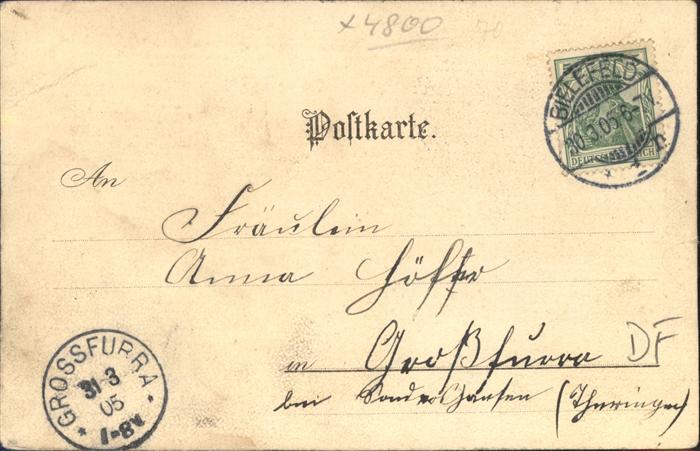 x4800 70
BIELEFELD
30.3.05.6-7N
* 1 c
DEUTSCHES REICH
Postkarte.
An
Fräulein
Anna Höffer
in Großfurra DF
bei Sondershausen (Thüringen)
GROSSFURRA
31 3
05
1-8V
* *